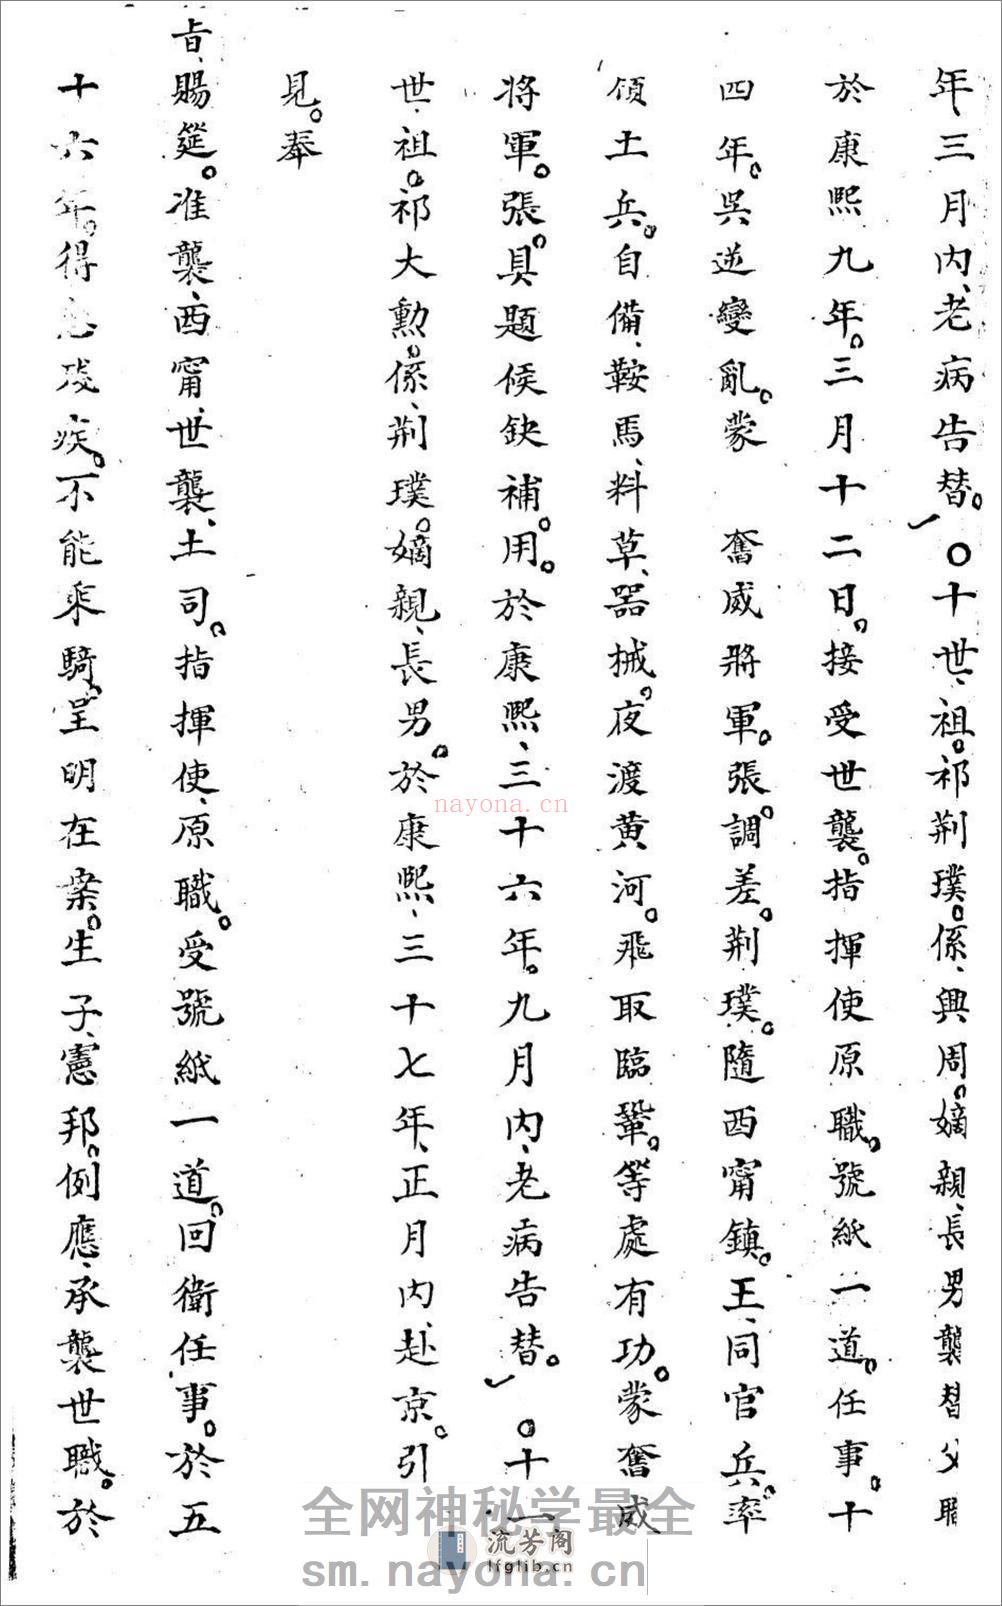 年、三月内、老病告替。〇十世、祖。祁荆璞。係、興周。嫡親、長男襲替父職
於康熙九年。三月十二日。接受世襲。指揮使原職。號紙一道。任事。十
四年。吳逆變亂。蒙　奮威將軍。張調差。荆璞。隨西甯鎮。王、同官兵。率
領土兵。自備、鞍馬、料草、器械。夜渡黄河。飛取臨鞏。等處有功。蒙奮威
將軍。張。具題候缺補。用。於康熙、三十六年。九月内、老病告替。〇十一
世、祖。祁大勲。係、荆璞。嫡親、長男。於康熙、三十七年、正月内、赴京。引
見。奉
旨、賜筵。准襲、西甯、世襲、土司。指揮使、原職。受號紙一道。回衛任事。於五
十六年。得急殘疾。不能乘騎。呈明在案。生子、憲邦。例應、承襲世職。於
nayona.cn
全网神秘学最全
流芳阁
lfglib.cn
sm.nayona.cn